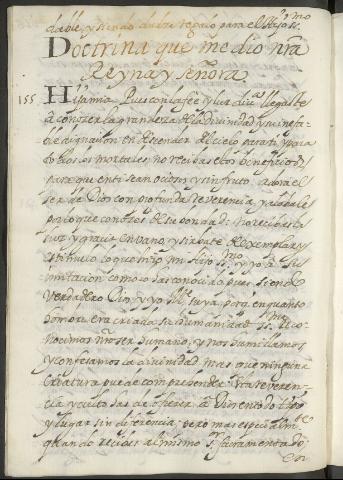 dable, y siendo dulce regalo para el Altss.mo
Doctrina que me dio nra
Reyna y señora.
155 Hija mia. Pues con la fee y luz diui.a llegaste
a conozer la grandeza de la Diuinidad y su inefa-
ble dignaçion en descender del cielo para ti, y para
todos los mortales; no recibas estos beneficios
para que en ti sean ociosos, y sin fruto. adora el
ser de Dios con profunda reuerencia, y alabale
por lo que conozes de su bondad: no recibas la
luz y gracia en vano, y siruate de exemplar y
estimulo lo que hiço mi Hijo ss.mo y yo a su
imitacion como lo has conocido pues siendo
verdadero Dios y yo M.e suya, porq en quanto
hombre era criada su humanidad ss.ma reco-
nocimos nro ser humano, y nos humillamos
y confesamos la diuinidad mas que ninguna
criatura puede comprehender. Esta reueren-
cia y culto has de ofrezer a Dios en todo tpo
y lugar sin diferencia; pero mas especialm.te
quando recibes al mismo S.r sacramentado